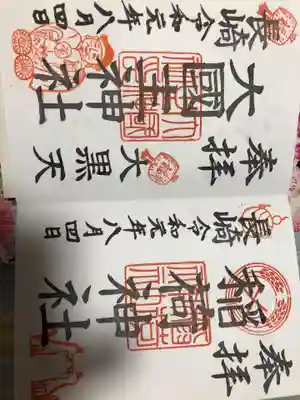 奉拝 大黒天
大國主神社
長崎 令和元年八月四日
奉拝
稲荷神社
長崎 令和元年八月四日